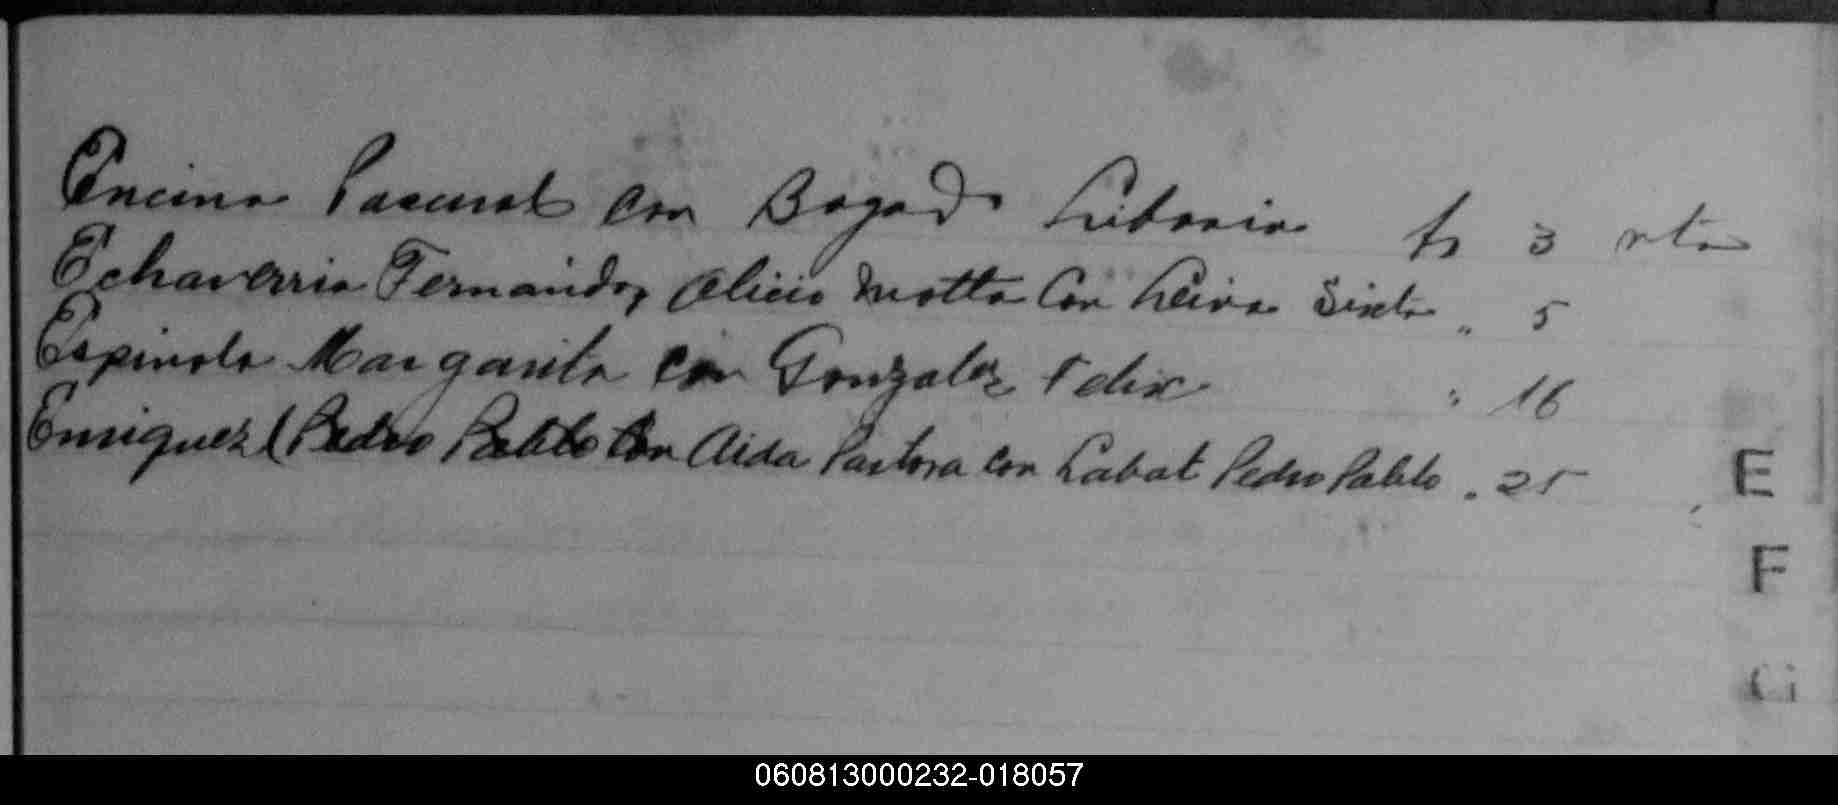 Encina Pascual con Bogado Liboria fs 3 vta
Echaverria Fernando, Alicio Motta Con Leiva Sixta " 5
Espinola Margarita con Gonzalez Felix " 16
Enriquez (Pedro Pablo con Aida Pastora con Labat Pedro Pablo . 25
E
F
G
060813000232-018057